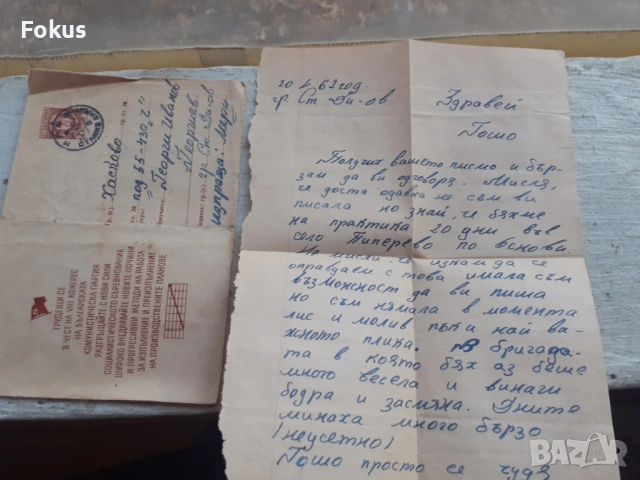 Fokus
Хасково
под 55-430, 2"
Георги Иванов
Георгиев
гр. Ст. Ди-ов
изпраща: Мари
ТРУДЕЩИ СЕ
В ЧЕСТ НА VIII КОНГРЕС
НА БЪЛГАРСКАТА
КОМУНИСТИЧЕСКА ПАРТИЯ
РАЗГРЪЩАЙТЕ С НОВИ СИЛИ
СОЦИАЛИСТИЧЕСКОТО СЪРЕВНОВАНИЕ
ШИРОКО ВНЕДРЯВАЙТЕ НОВИТЕ ПОЧИНИ
И ПРОГРЕСИВНИ МЕТОДИ НА РАБОТА
ЗА ИЗПЪЛНЕНИЕ И ПРЕИЗПЪЛНЕНИЕ
НА ПРОИЗВОДСТВЕНИТЕ ПЛАНОВЕ
62 год.
гр. Ст. Ди-ов
Здравей
Гошо
Получих вашето писмо и бър-
зам да ви отговоря. Мисля,
че доста одавна не съм ви
писала но знай, че бяхме
на практика 20 дни във
село Пиперево по основи.
Не мисли, че искам да се
оправдаем с това имала съм
възможност да ви пиша
но съм нямала в момента
лис и молив пък и най ва-
жното плика. В бригада-
та в която бях аз беше
много весела и винаги
бодра и засмяна. Дните
минаха много бързо
(неусетно)
Гошо просто се чудя
BAZAR
bg